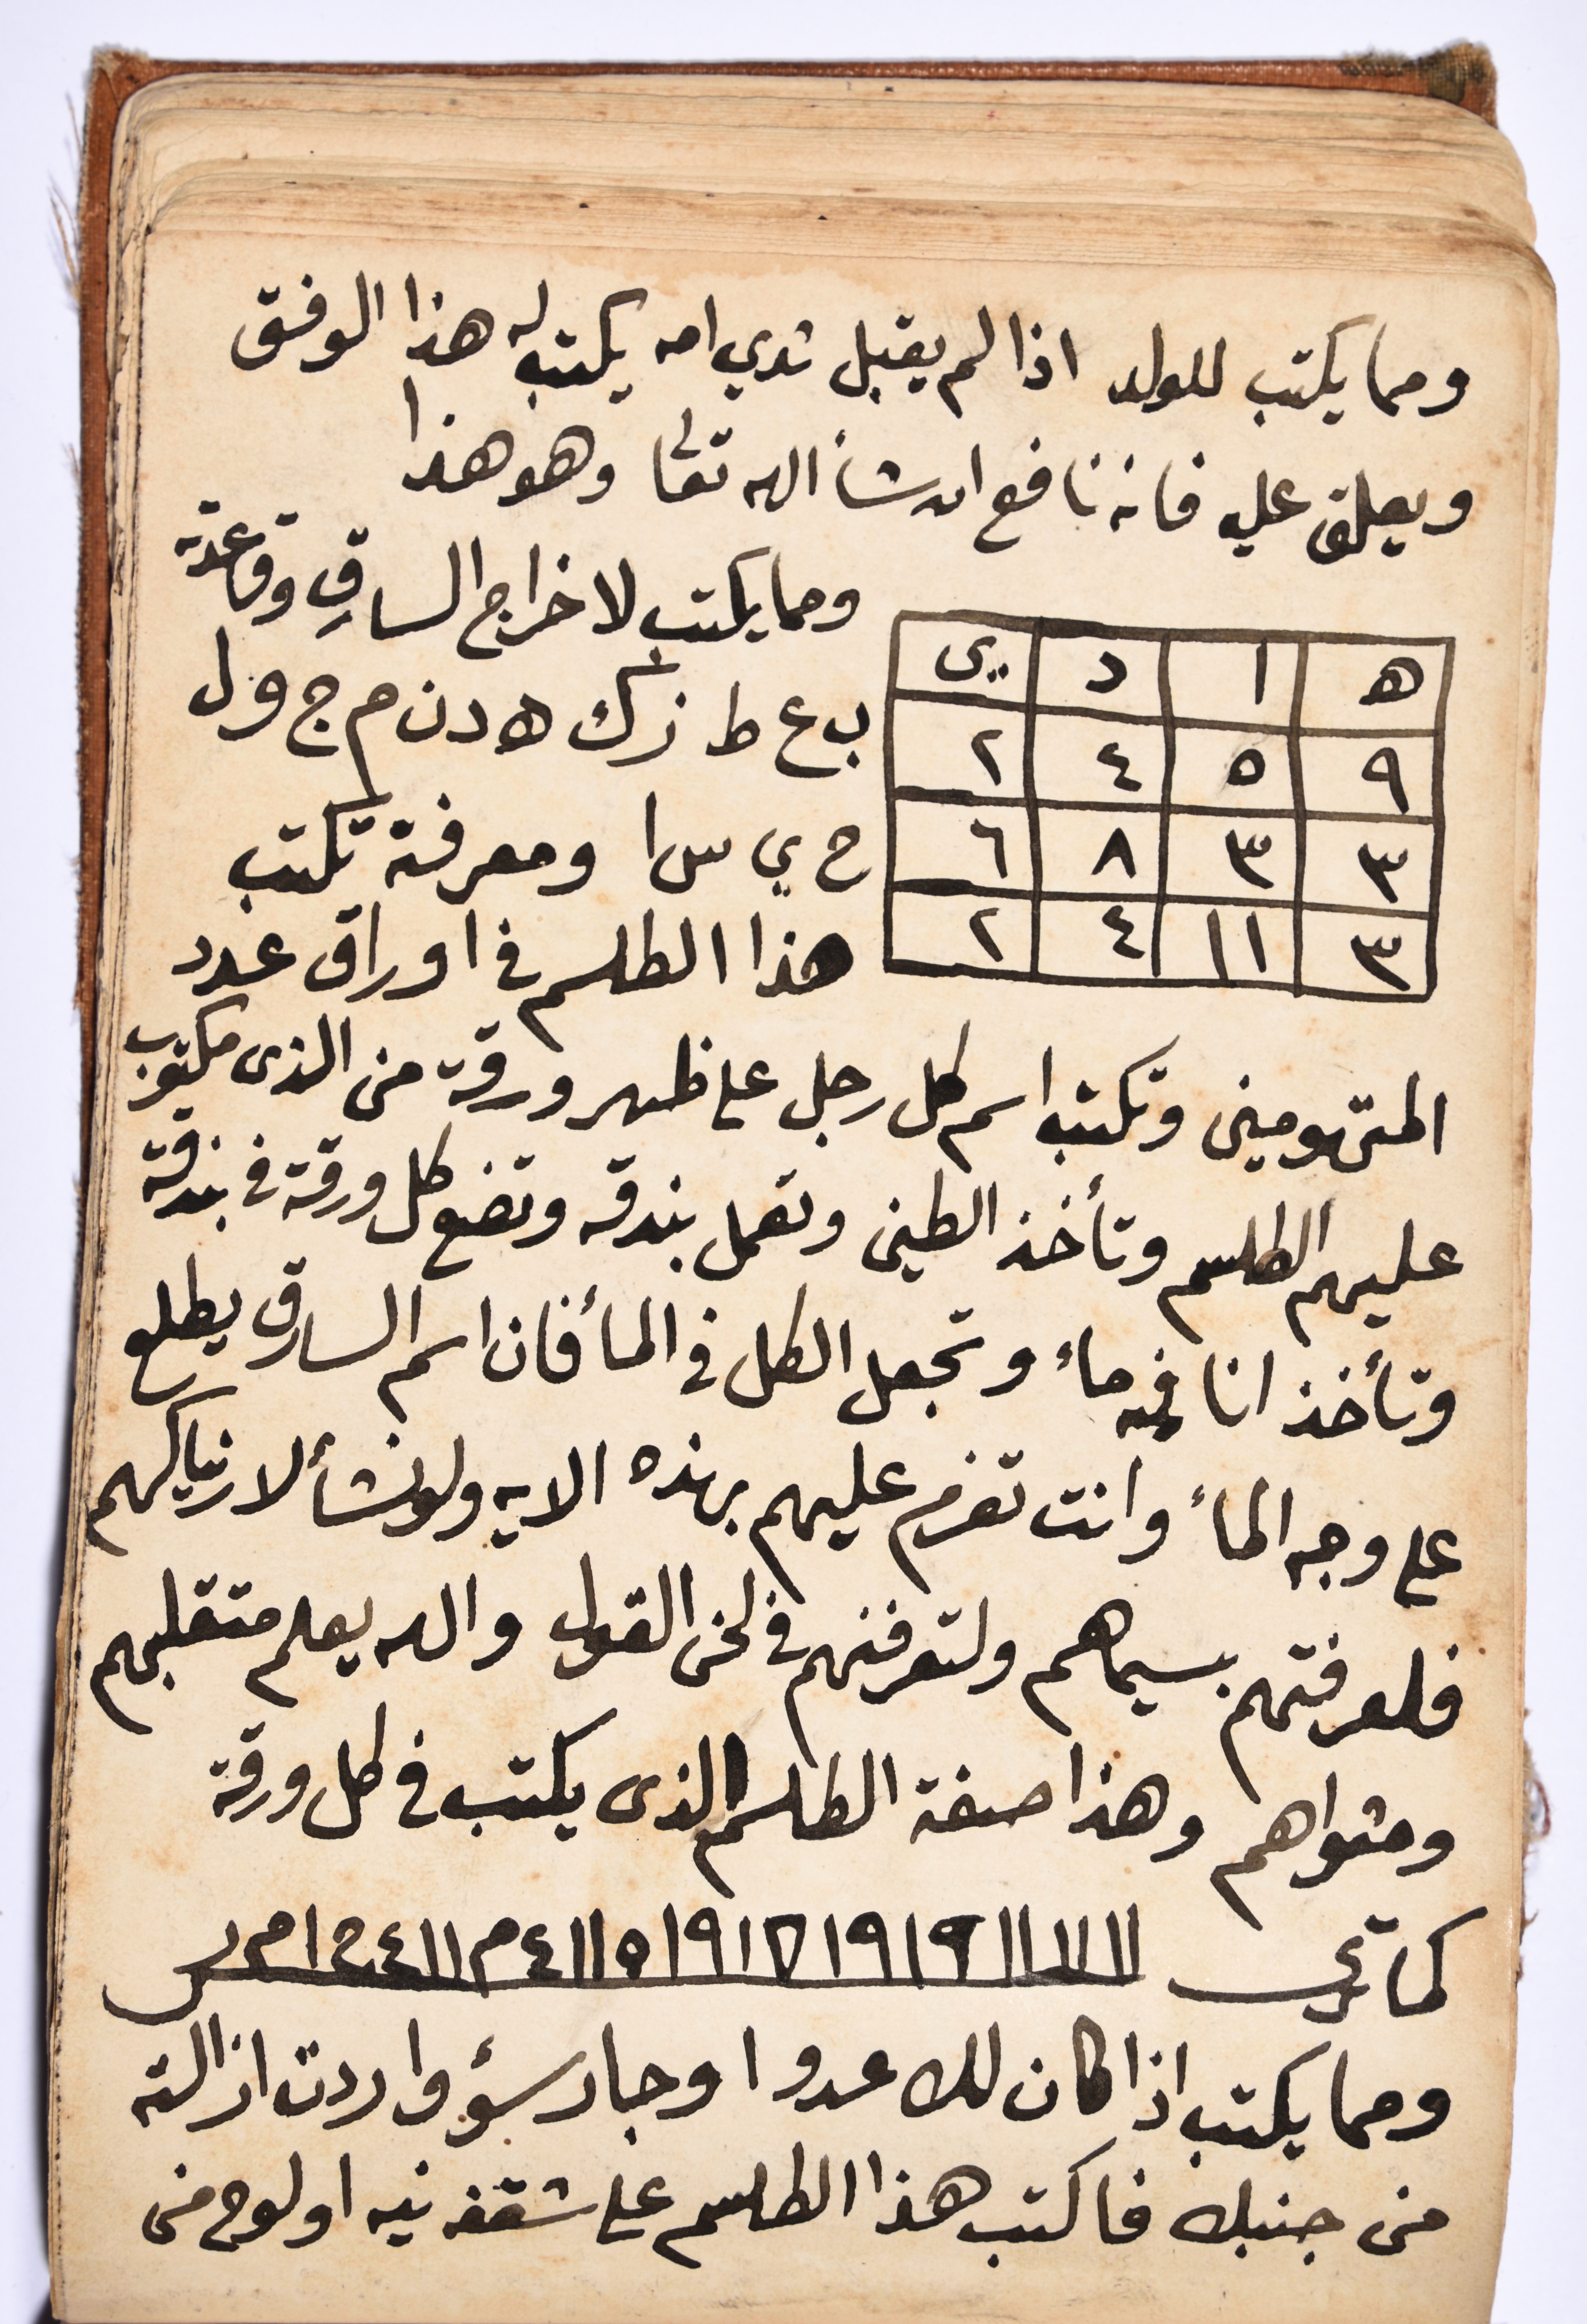 ومما يكتب للولد اذا لم يقبل ثدي امه يكتب له هذا الوفق
ويعلق عليه فانه نافع ان شأ الله تعالى وهو هذا
ه ا د ى
٩ ٥ ٤ ٢
٣ ٣ ٨ ٦
٣ ١١ ٤ ٢
ومما يكتب لاخراج السارق وقاعدته
ب ع ط ز ك ه د ن م ج و ل
ح ي س ا ومعرفة تكتب
هذا الطلسم في اوراق عدد
المتهومين وتكتب اسم كل رجل على ظهر ورقة من الذى مكتوب
عليهم الطلسم وتأخذ الطين وتعمل بندقه وتضع كل ورقة في بندقة
وتأخذ انا فيه مأ وتجعل الكل في المأ فان اسم السارق يطلع
على وجه المأ وانت تعزم عليهم بهذه الايه ولو نشأ لارنياكهم
فلعرفتهم بسيماهم ولتعرفنهم في لحن القول والله يعلم متقلبهم
ومثواهم وهذا صفة الطلسم الذى يكتب في كل ورقة
كما ترى
ومما يكتب اذا كان لك عدوا وجار سؤ واردت ازالته
من جنبك فاكتب هذا الطلسم على شقفه نيه او لوح من